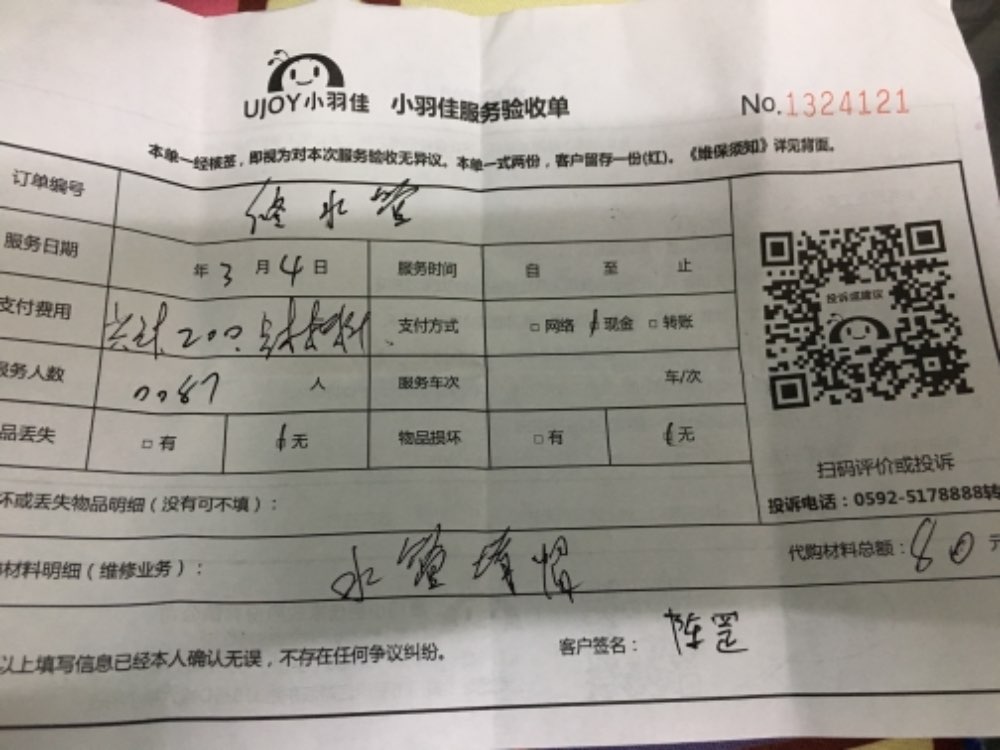 UJOY小羽佳 小羽佳服务验收单 No.1324121
本单一经核签，即视为对本次服务验收无异议。本单一式两份，客户留存一份(红)。《维保须知》详见背面。
订单编号 修水管
服务日期 年3月4日 服务时间 自 至 止
支付费用 200 支付方式 □网络 现金 □转账
服务人数 0087 人 服务车次 车/次
品丢失 □有 无 物品损坏 □有 无
投诉或建议
扫码评价或投诉
投诉电话：0592-5178888转
坏或丢失物品明细（没有可不填）：
材料明细（维修业务）： 水管 代购材料总额：80元
以上填写信息已经本人确认无误，不存在任何争议纠纷。 客户签名： 陈